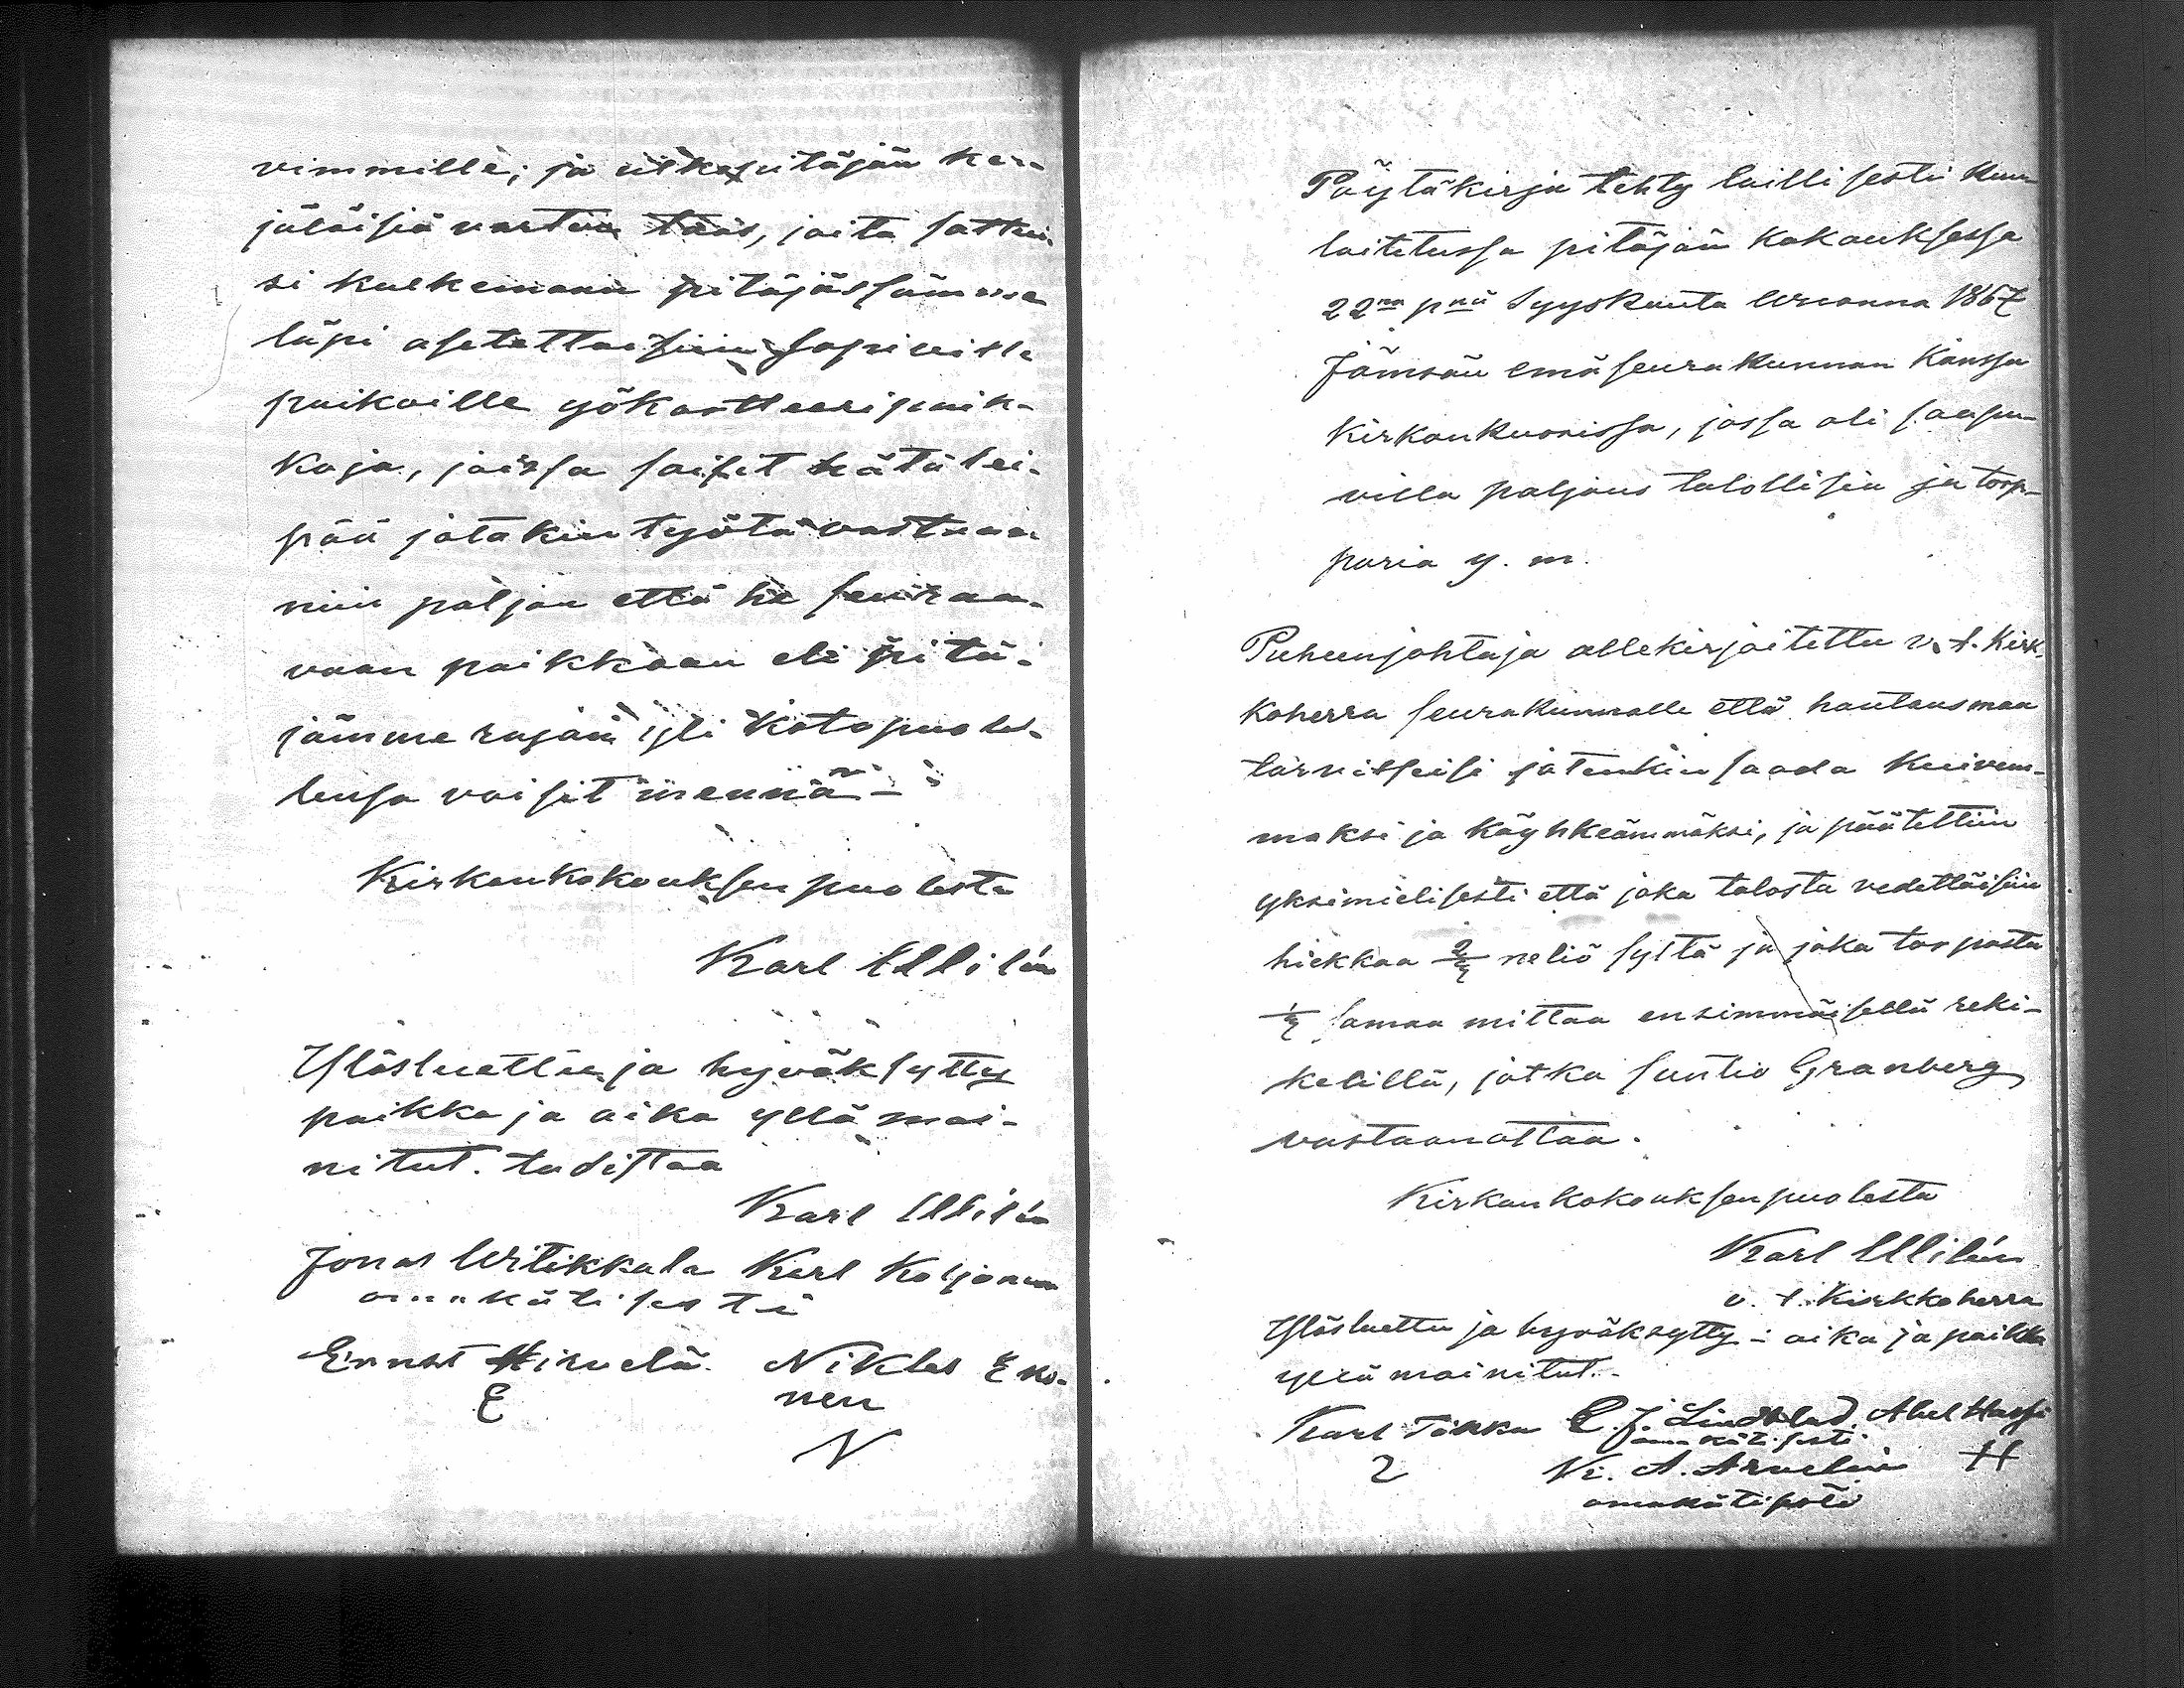 vimmille; ja ulkopitäjän ker-
jäläisiä varten taas, joita sattui-
si kulkemaan pitäjässämme
läpi asetettaisiin sopiville
paikoille yökortteeripaik-
koja, joissa saisit hätälei-
pää jotakin työtä vastaan
niin paljon että he seuraa-
vaan paikkaan eli pitä-
jämme rajan yli kotopuolel-
lensa voisit mennä –
Kirkonkokouksen puolesta
Karl Ullilén
Ylösluettu ja hyväksytty
paikka ja aika yllä mai-
nitut. todistaa
Karl Ullilén
Jonas Witikkala Karl Koljonen
omakätisesti
Ernst Hirvelä. Niklas Eko-
E nen
N
Pöytäkirja tehty laillisesti kuu-
lutetussa pitäjän kokouksessa
22na pnä Syyskuuta Wuonna 1867
Jämsän emäseurakunnan kanssa
Kirkonkuorissa, jossa oli saapu-
villa paljous talollisia ja torp-
paria y. m.
Puheenjohtaja allekirjoitettu v. t. Kirk-
koherra seurakunnalle että hautausmaa
tarvitseisi jotenkin saada kuivem-
maksi ja köyhkeämmäksi, ja päätettiin
yksimielisesti että joka talosta vedettäisiin
hiekkaa 2/4 neliö syltä ja joka torpasta
1/4 samaa mittaa ensimmäisellä reki-
kelillä, jotka suntio Granberg
vastaanottaa.
Kirkonkokouksen puolesta
Karl Ullilén
v. t. Kirkkoherra
Ylösluettu ja hyväksytty – aika ja paikka
yllä mainitut.-
Karl Tökku E. J. Lindblad Abel Hassi
omakätisesti
2 Kr. A. Arvelin H
omakätisesti